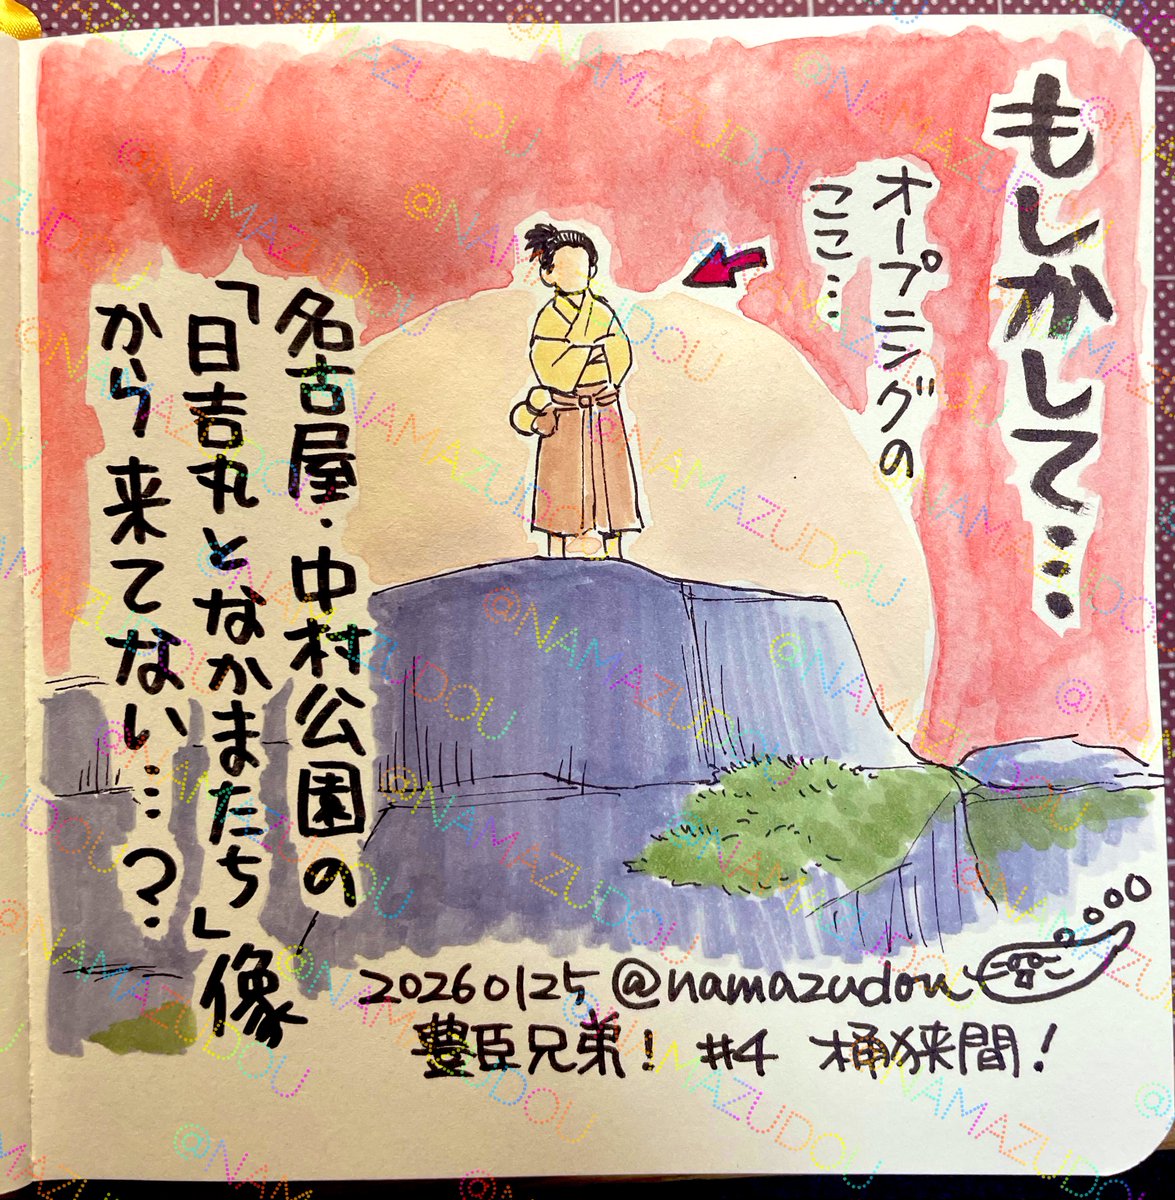 もしかして…
オープニングの
ここ…
名古屋・中村公園の
「日吉丸となかまたち」像
から来てない…?
20260125 @namazudou
豊臣兄弟! #4 桶狭間!
@NAMAZUDOU